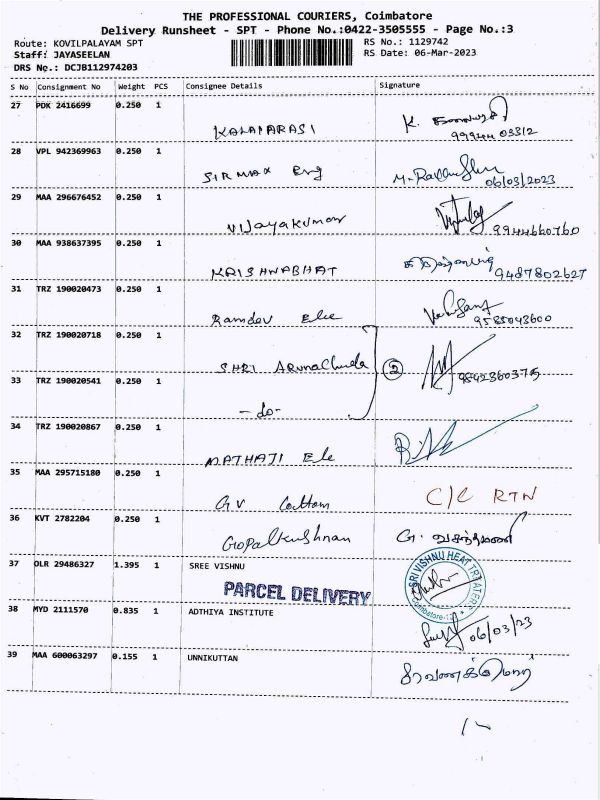 THE PROFESSIONAL COURIERS, Coimbatore
Delivery Runsheet - SPT - Phone No.:0422-3505555 - Page No.:3
Route: KOVILPALAYAM SPT
RS No.: 1129742
Staff: JAYASEELAN
RS Date: 06-Mar-2023
DRS No.: DCJB112974203
S No Consignment No Weight PCS Consignee Details Signature
27 PDK 2416699 0.250 1
KALAIARASI K.
28 VPL 942369963 0.250 1
SIRMAX Eng 06/03/2023
29 MAA 296676452 0.250 1
VIJayakumar 9944660760
30 MAA 938637395 0.250 1
KRISHNABHAT 9487802627
31 TRZ 190020473 0.250 1
Ramdev Ele 9585043600
32 TRZ 190020718 0.250 1
SHRI Arunachala 2
33 TRZ 190020541 0.250 1
-do-
34 TRZ 190020867 0.250 1
MATHAJI Ele
35 MAA 295715180 0.250 1
GV Cottom C/C RTN
36 KVT 2782204 0.250 1
Gopalkrishnan G. வசந்தமணி
37 OLR 29486327 1.395 1 SREE VISHNU
SRI VISHNU HEAT TREATERS
PARCEL DELIVERY
38 MYD 2111570 0.835 1 ADTHIYA INSTITUTE
06/03/23
39 MAA 600063297 0.155 1 UNNIKUTTAN